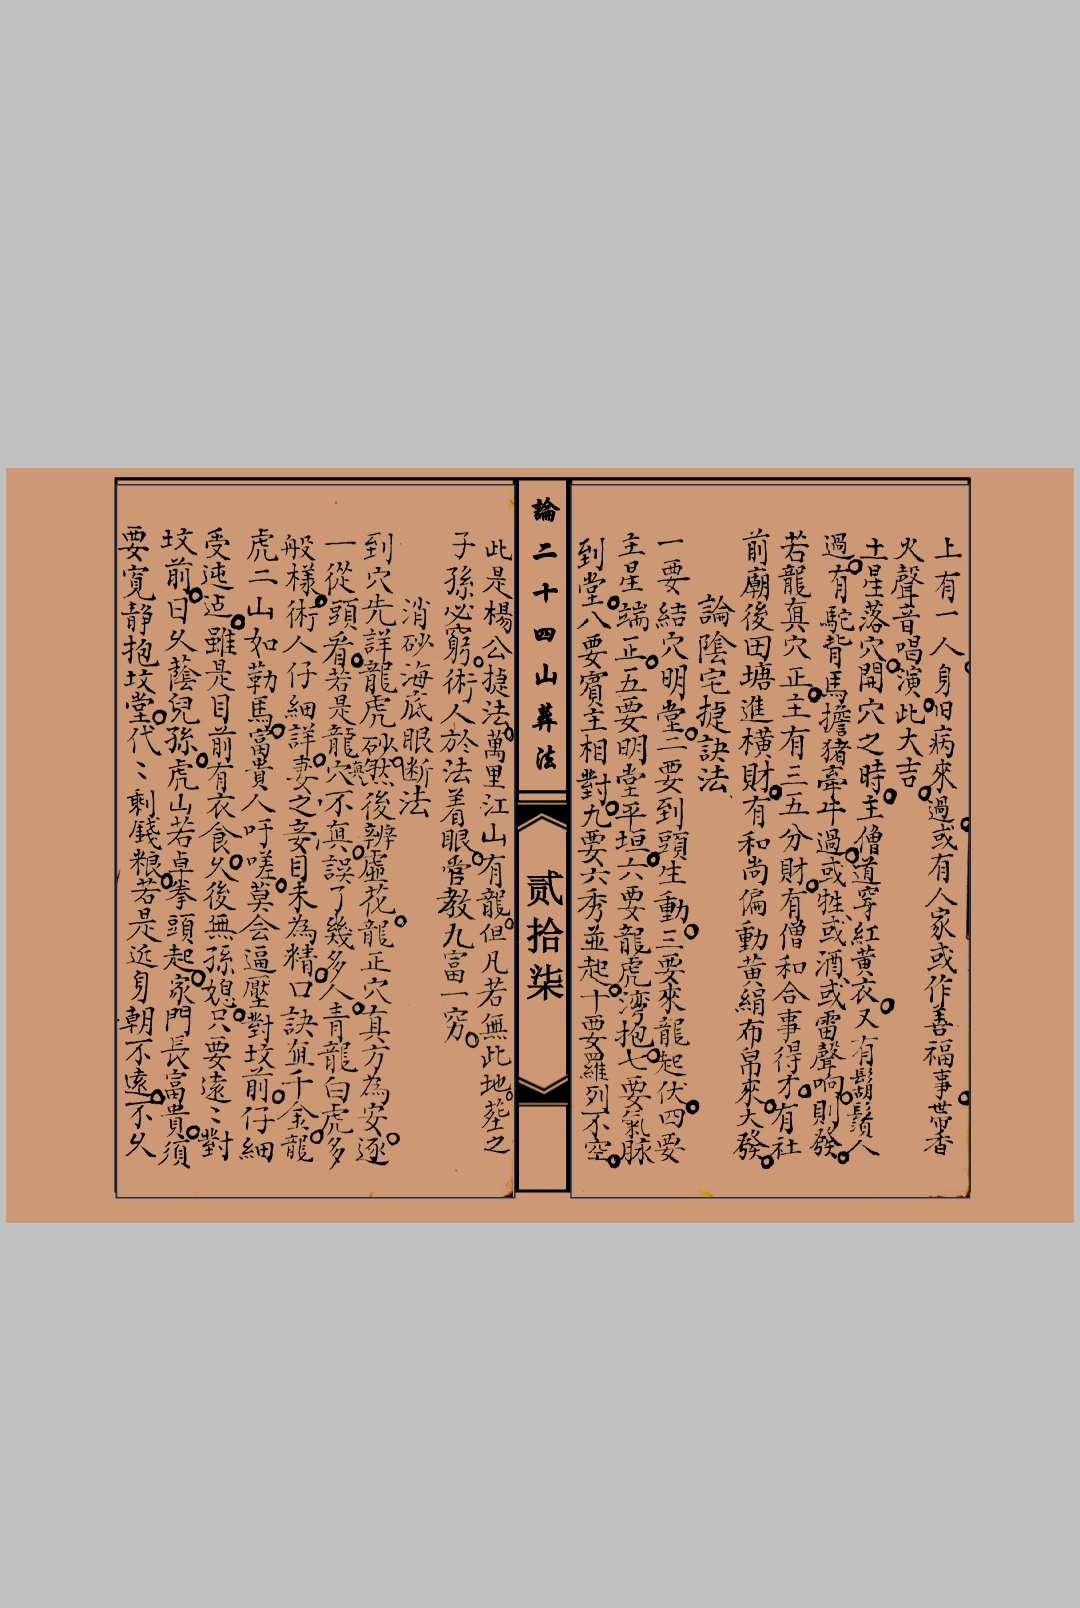 上有一人身旧病來過或有人家或作善福事世香
火聲音唱演此大吉
土星落穴開穴之時主僧道穿紅黃衣又有鬍鬚人
過有駝背馬擔猪牽牛過或牲或酒或雷聲响則發
若龍真穴正主有三五分財有僧和合事得才有社
前廟後田塘進橫財有和尚偏動黃絹布帛來大發
論陰宅捷訣法
一要結穴明堂二要到頭生動三要來龍起伏四要
主星端正五要明堂平垣六要龍虎湾抱七要氣脉
到堂八要賓主相對九要六秀並起十要羅列不空
論二十四山葬法
贰拾柒
此是楊公捷法萬里江山有龍但凡若無此地塟之
子孫必窮術人於法着眼管教九富一穷
消砂海底眼断法
到穴先詳龍虎砂然後辨虛花龍正穴真方為安逐
一從頭看若是龍穴不真誤了幾多人青龍白虎多
般樣術人仔細詳妻之妾目未為精口訣值千金龍
虎二山如勒馬富貴人吁嗟莫会逼壓對坟前仔細
受迍邅雖是目前有衣食久後無孫媳只要遠〻對
坟前日久蔭兒孫虎山若卓拳頭起家門長富貴須
要寬静抱坟堂代〻剩錢粮若是近身朝不遠不久